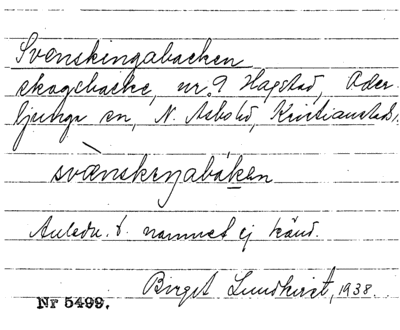 Svenskingabacken
skogsbacke, nr. 9 Hagstad, Oder-
ljunga sn, N. Åsbohd, Kristianstads l.
svènskeŋabáken
Anledn. t. namnet ej känd.
Birget Lundkvist, 1938.
Nr 5499.